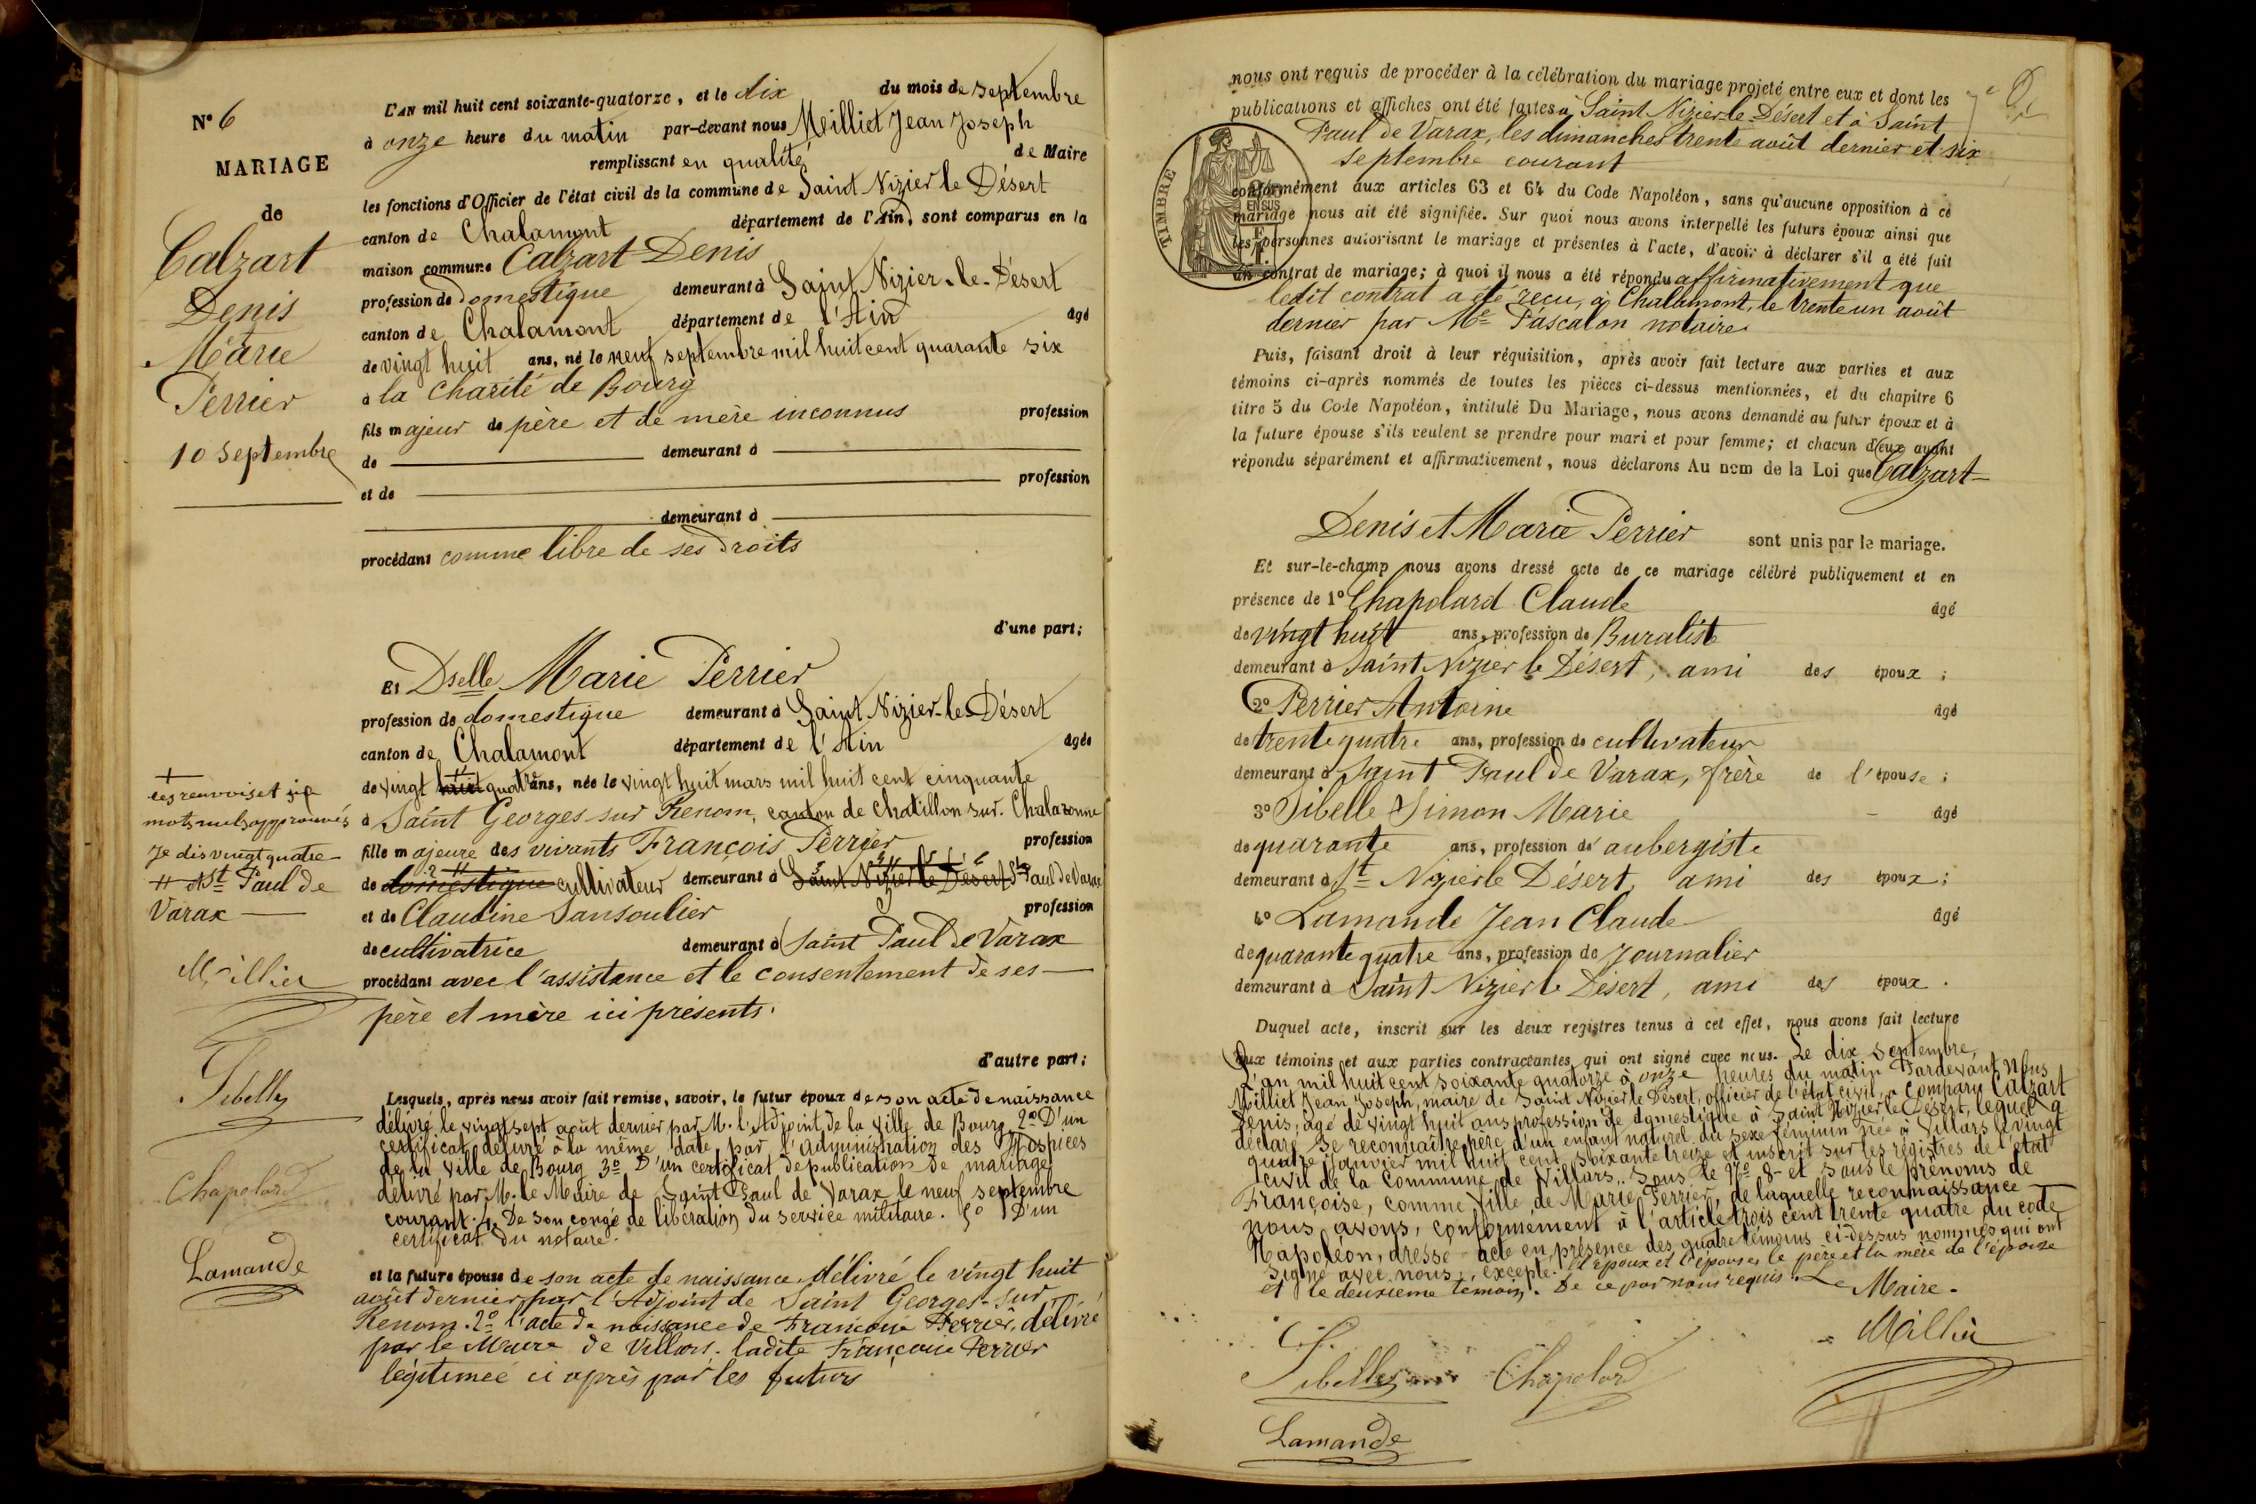 N° 6
MARIAGE
de
Calzart
Denis
Marie
Perrier
10 septembre
L'AN mil huit cent soixante-quatorze, et le dix du mois de septembre
à onze heure du matin par-devant nous Milliet Jean Joseph
remplissant en qualité de Maire
les fonctions d'Officier de l'état civil de la commune de Saint Nizier le Désert
canton de Chalamont département de l'Ain, sont comparus en la
maison commune Calzart Denis
profession de domestique demeurant à Saint Nizier-le-Désert
canton de Chalamont département de l'Ain âgé
de vingt huit ans, né le neuf septembre mil huit cent quarante six
à la Charité de Bourg
fils majeur de père et de mère inconnus profession
de demeurant à
et de profession
demeurant à
procédant comme libre de ses droits
d'une part;
Et Dselle Marie Perrier
profession de domestique demeurant à Saint Nizier-le-Désert
canton de Chalamont département de l'Ain âgée
de vingt huit quatre ans, née le vingt huit mars mil huit cent cinquante
à Saint Georges sur Renom, canton de Chatillon sur Chalaronne
fille majeure des vivants François Perrier profession
de domestique cultivateur demeurant à Saint Nizier le Désert St Paul de Varax
et de Claudine Sansoulier profession
de cultivatrice demeurant à Saint Paul de Varax
procédant avec l'assistance et le consentement de ses
père et mère ici présents.
d'autre part;
les renvois et six
mots nuls approuvés
Je dis vingt quatre
St Paul de
Varax
Milliet
Sibelle
Chapolard
Lamande
Lesquels, après nous avoir fait remise, savoir, le futur époux de son acte de naissance
délivré le vingt sept août dernier par M. l'Adjoint de la ville de Bourg 2° D'un
certificat délivré à la même date par l'administration des Hospices
de la ville de Bourg 3° D'un certificat de publication de mariage
délivré par M. le Maire de Saint Paul de Varax le neuf septembre
courant. 4. De son congé de libération du service militaire. 5° D'un
certificat du notaire.
et la future épouse de son acte de naissance délivré le vingt huit
août dernier par l'Adjoint de Saint Georges-sur-
Renom. 2° l'acte de naissance de Françoise Perrier, délivré
par le Maire de Villars. ladite Françoise Perrier
légitimée ci après par les futurs
nous ont requis de procéder à la célébration du mariage projeté entre eux et dont les
publications et affiches ont été faites à Saint Nizier-le-Désert et à Saint
Paul de Varax, les dimanches trente août dernier et six
septembre courant
TIMBRE
EN SUS
conformément aux articles 63 et 64 du Code Napoléon, sans qu'aucune opposition à ce
mariage nous ait été signifiée. Sur quoi nous avons interpellé les futurs époux ainsi que
les personnes autorisant le mariage et présentes à l'acte, d'avoir à déclarer s'il a été fait
un contrat de mariage; à quoi il nous a été répondu affirmativement que
ledit contrat a été reçu, à Chalamont, le trente un août
dernier par Me Pascalon notaire
Puis, faisant droit à leur réquisition, après avoir fait lecture aux parties et aux
témoins ci-après nommés de toutes les pièces ci-dessus mentionnées, et du chapitre 6
titre 5 du Code Napoléon, intitulé Du Mariage, nous avons demandé au futur époux et à
la future épouse s'ils veulent se prendre pour mari et pour femme; et chacun d'eux ayant
répondu séparément et affirmativement, nous déclarons Au nom de la Loi que Calzart
Denis et Marie Perrier sont unis par le mariage.
Et sur-le-champ nous avons dressé acte de ce mariage célébré publiquement et en
présence de 1° Chapolard Claude âgé
de vingt huit ans, profession de Buraliste
demeurant à Saint Nizier le Désert, ami des époux;
2° Perrier Antoine âgé
de trente quatre ans, profession de cultivateur
demeurant à Saint Paul de Varax, frère de l'épouse;
3° Sibelle Simon Marie âgé
de quarante ans, profession d'aubergiste
demeurant à St Nizier le Désert, ami des époux;
4° Lamande Jean Claude âgé
de quarante quatre ans, profession de Journalier
demeurant à Saint Nizier le Désert, ami des époux.
Duquel acte, inscrit sur les deux registres tenus à cet effet, nous avons fait lecture
aux témoins et aux parties contractantes qui ont signé avec nous. Le dix septembre,
L'an mil huit cent soixante quatorze à onze heures du matin Pardevant Nous
Milliet Jean Joseph, maire de Saint Nizier le Désert, officier de l'état civil, a comparu Calzart
Denis, âgé de vingt huit ans profession de domestique à Saint Nizier le Désert, lequel a
déclaré se reconnaître père d'un enfant naturel du sexe féminin née à Villars le vingt
quatre janvier mil huit cent soixante treize et inscrit sur les registres de l'état
civil de la Commune de Villars.. sous le N° 8 et sous le prénoms de
Françoise, comme fille de Marie Perrier, de laquelle reconnaissance
nous avons, conformément à l'article trois cent trente quatre du code
Napoléon, dressé acte en présence des quatre témoins ci-dessus nommés qui ont
signé avec nous, excepté l'époux et l'épouse, le père et la mère de l'épouse
et le deuxième témoin. De ce par nous requis. Le Maire.
Milliet
Sibelle Chapolard
Lamande